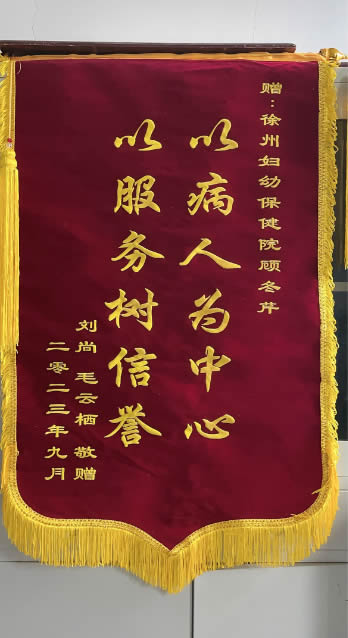 赠：徐州妇幼保健院顾冬芹
以病人为中心
以服务树信誉
刘尚 毛云栖 敬赠
二零二三年九月